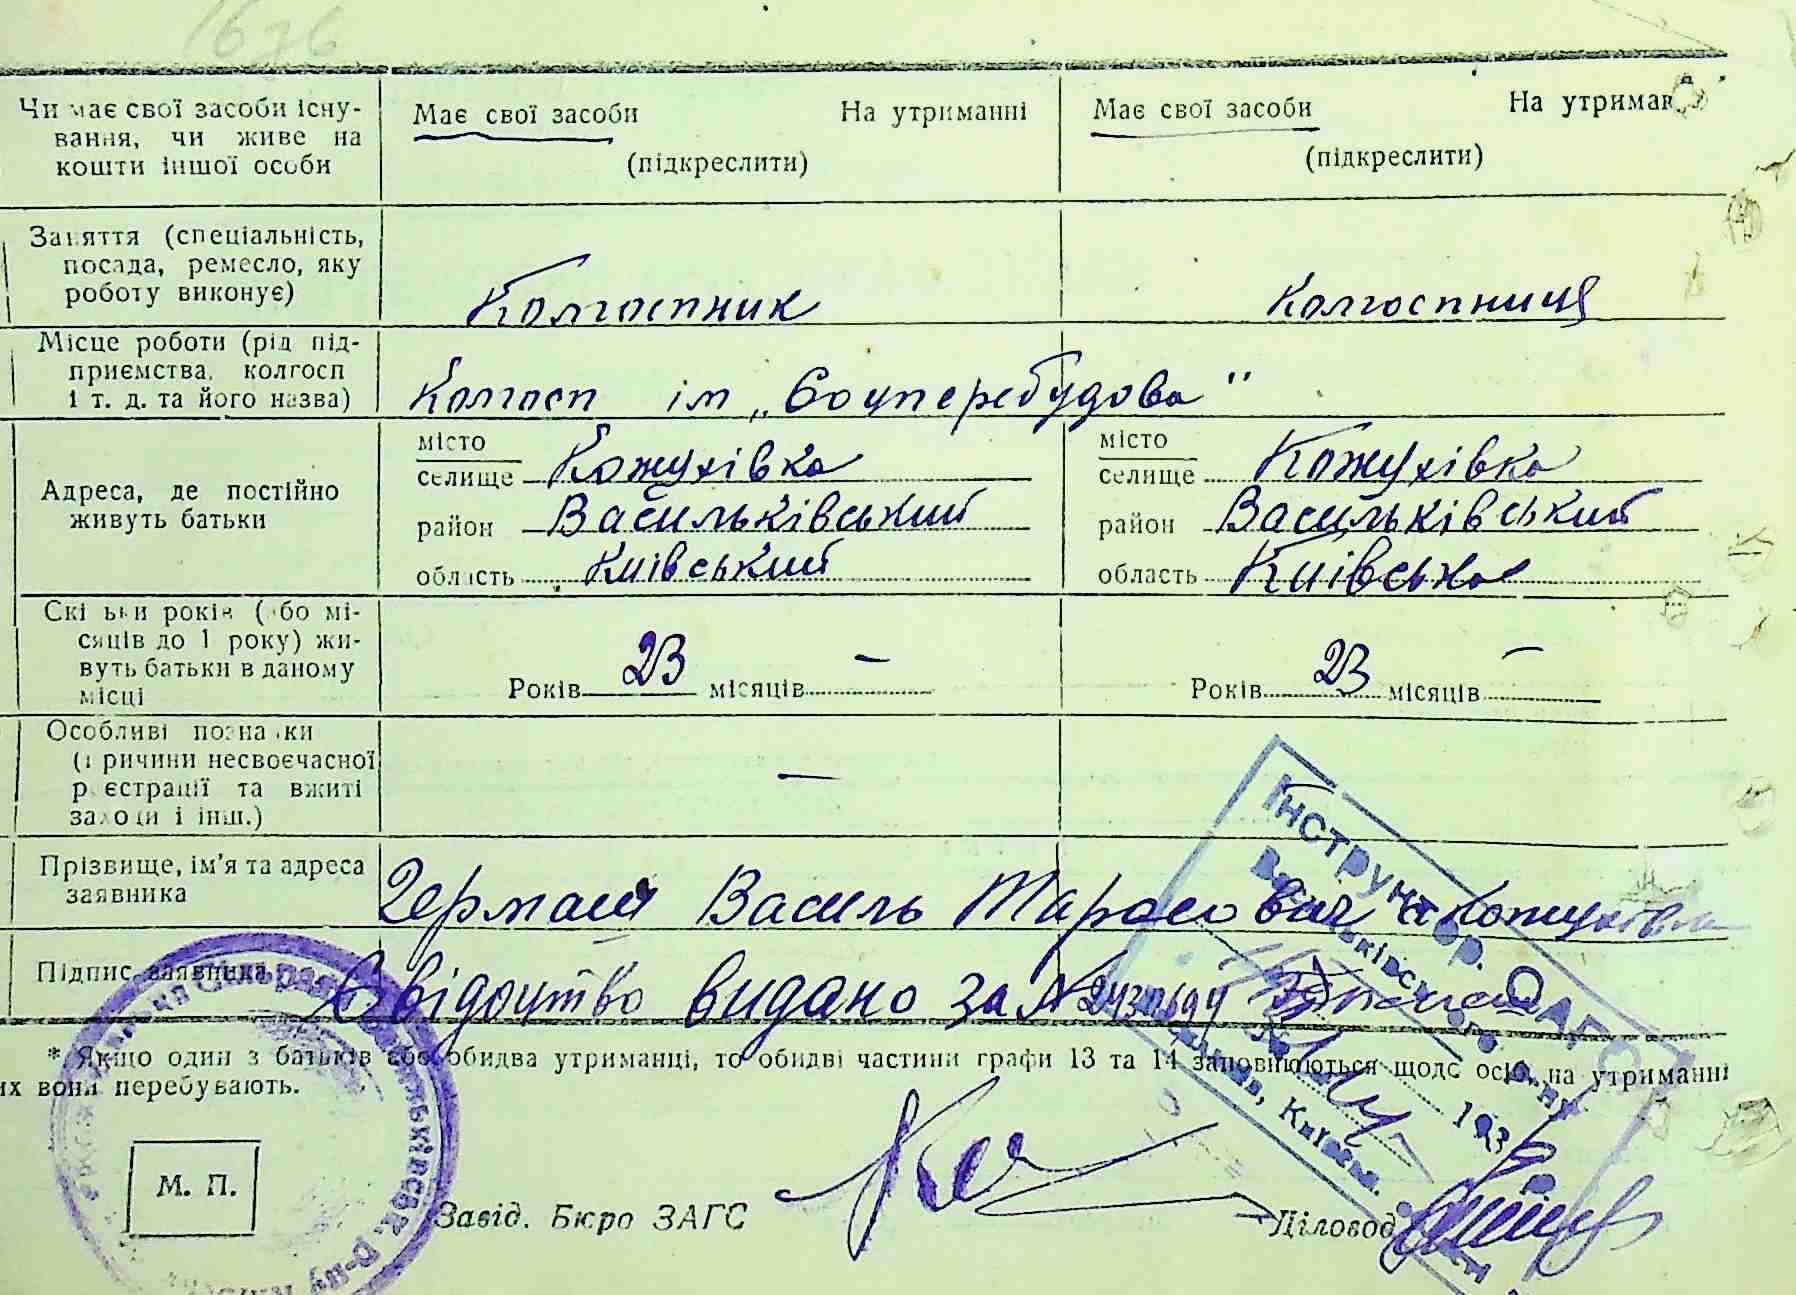 1676
Чи має свої засоби існу-
вання, чи живе на
кошти іншої особи
Має свої засоби На утриманні
(підкреслити)
Має свої засоби На утриман
(підкреслити)
Заняття (спеціальність,
посада, ремесло, яку
роботу виконує)
Колгоспник
колгоспниця
Місце роботи (рід під-
приємства, колгосп
і т. д. та його назва)
Колгосп ім „Соцперебудова"
Адреса, де постійно
живуть батьки
місто
селище Кожухівка
район Васильківський
область Київський
місто
селище Кожухівка
район Васильківський
область Київська
Скільки років (або мі-
сяців до 1 року) жи-
вуть батьки в даному
місці
Років 23 місяців —
Років 23 місяців —
Особливі познаки
(причини несвоєчасної
реєстрації та вжиті
заходи і інш.)
—
Прізвище, ім'я та адреса
заявника
Василь Тарасович с Кожухівка
Підпис заявника
Свідоцтво видано за №
* Якщо один з батьків або обидва утриманці, то обидві частини графи 13 та 14 заповнюються щодо осіб, на утриманні
их вони перебувають.
М. П.
Завід. Бюро ЗАГС
Діловод
Інструктор. ОАГС
Васильківського
193